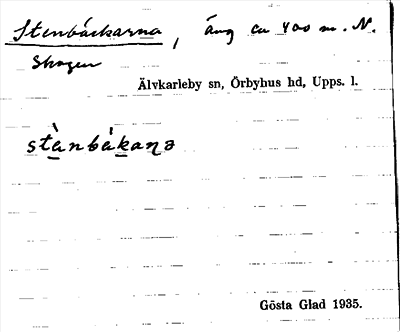 Stenbäckarna, äng ca 400 m. N.
Skogen
Älvkarleby sn, Örbyhus hd, Upps. l.
stànbákaṇə
Gösta Glad 1935.